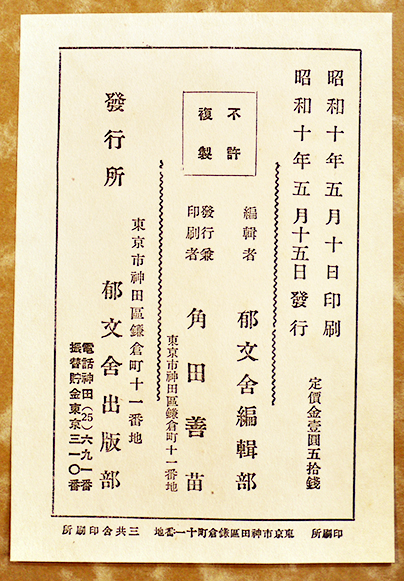 昭和十年五月十日印刷
昭和十年五月十五日發行
定價金壹圓五拾錢
不許
複製
編輯者
郁文舍編輯部
發行兼
印刷者
角田善苗
東京市神田區鎌倉町十一番地
發行所
東京市神田區鎌倉町十一番地
郁文舍出版部
電話神田(25)六九一番
振替貯金東京三一〇番
印刷所 東京市神田區鎌倉町十一番地 三共合印刷所